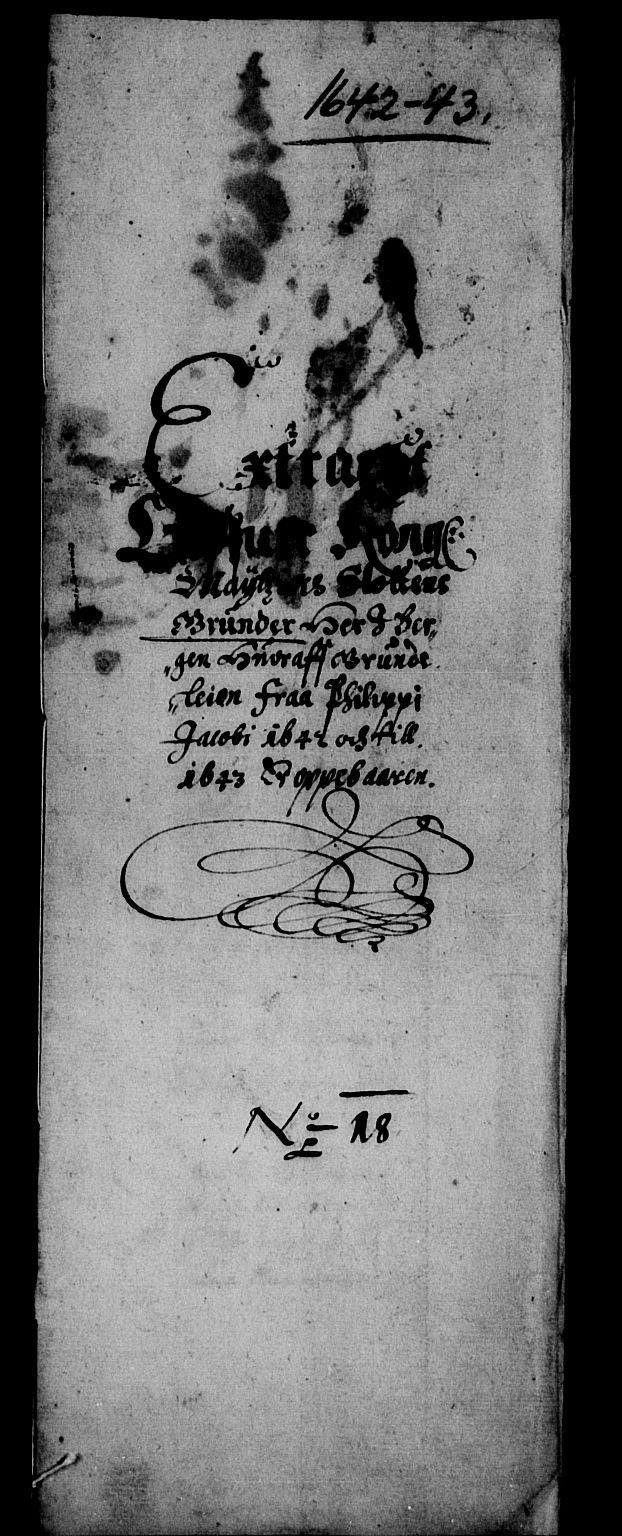 1642-43.
Extragt
Kong:
Maÿtz: Slottens
Grunder Her J Ber„
„gen Huoraff Grunde
„leien fraa Philippi
Jacobi 1642 och till
1643 Oppebaaren.
No 18